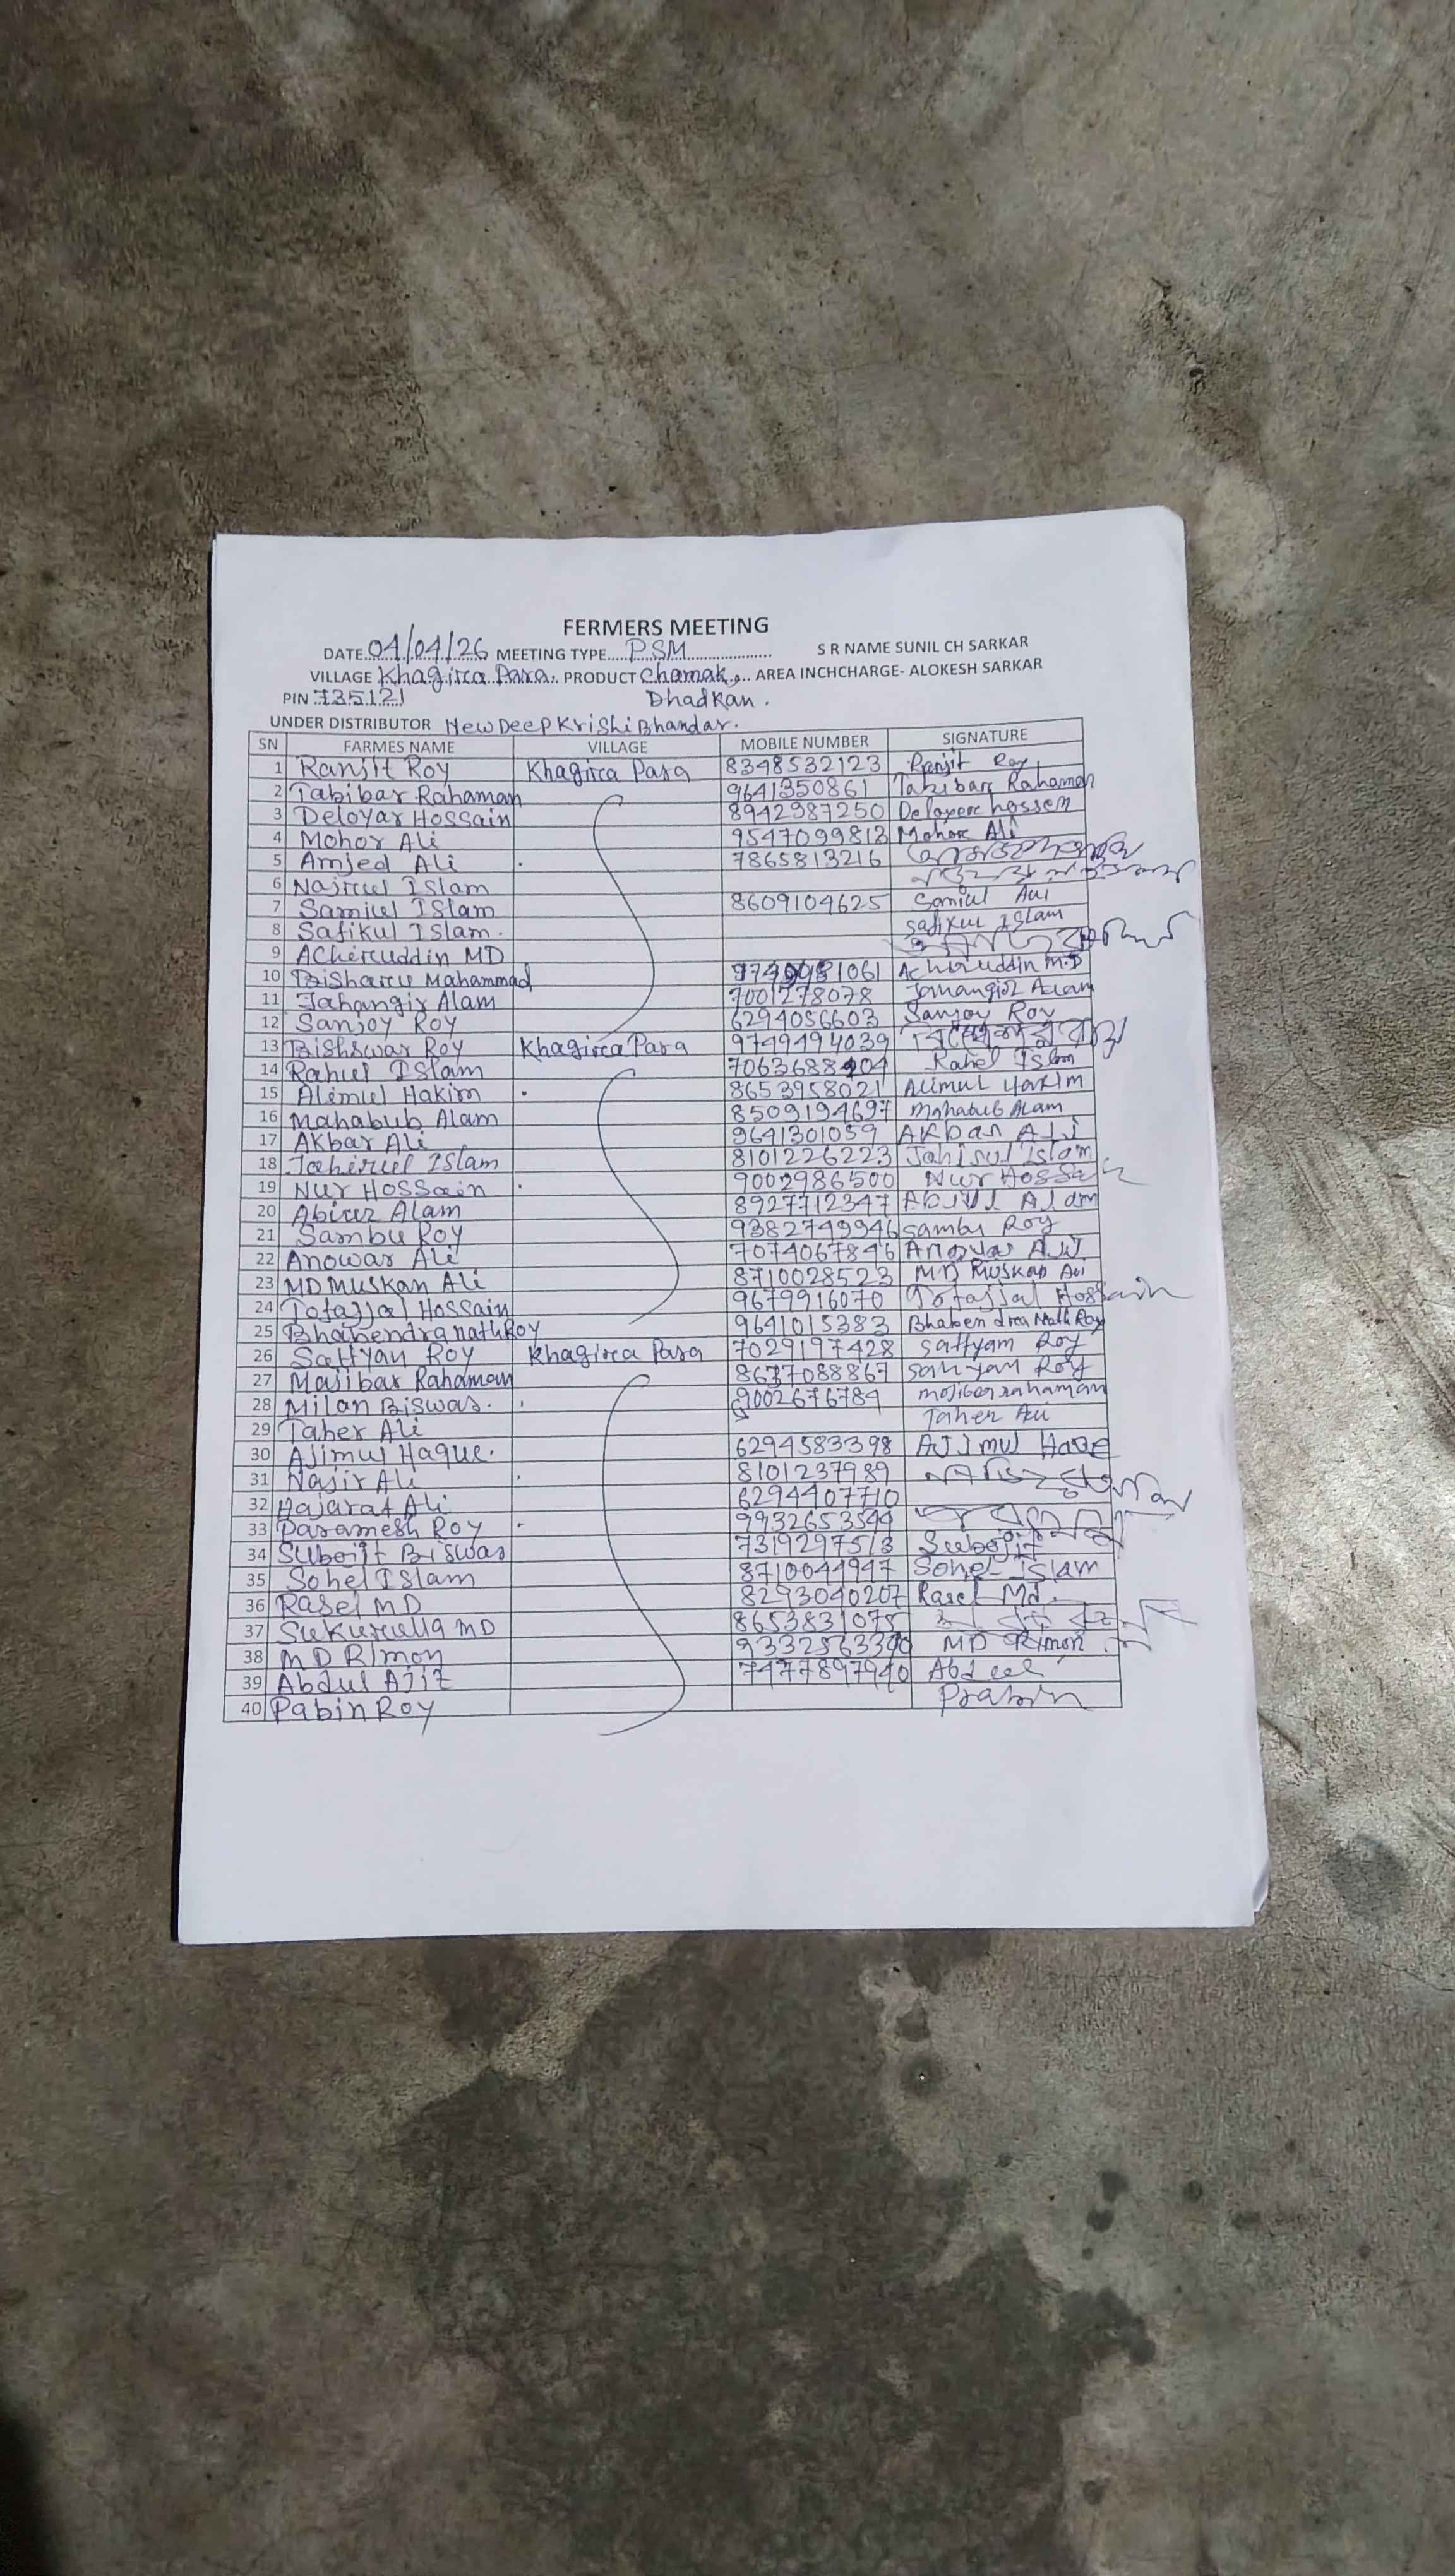 FERMERS MEETING
DATE 04/04/26 MEETING TYPE PSM S R NAME SUNIL CH SARKAR
VILLAGE Khagirca Para PRODUCT Chamak, AREA INCHCHARGE- ALOKESH SARKAR
PIN 735121 Dhadkan.
UNDER DISTRIBUTOR New Deep Krishi Bhandar.
SN FARMES NAME VILLAGE MOBILE NUMBER SIGNATURE
1 Ranjit Roy Khagirca Para 8348532123 Ranjit Roy
2 Tabibar Rahaman 9641350861 Tabibar Rahaman
3 Deloyar Hossain 8942987250 Deloyer hossen
4 Mohor Ali 9547099813 Mohor Ali
5 Amjed Ali 7865813216
6 Najrul Islam
7 Samiul Islam 8609104625 Samiul Ali
8 Safikul Islam. Safikul Islam
9 Achiruddin MD
10 Bisharu Mahammad Achiruddin M.D
11 Jahangir Alam 7001278078 Jahangir Alam
12 Sanjoy Roy 6294056603 Sanjoy Roy
13 Bishswar Roy Khagirca Para 9749494039
14 Rahul Islam Rahel Islam
15 Alimul Hakim 8653958021 Alimul Hakim
16 Mahabub Alam 8509194697 Mahabub Alam
17 Akbar Ali 9641301059 Akbar Ali
18 Jahirul Islam 8101226223 Jahirul Islam
19 Nur Hossain 9002986500 Nur Hossain
20 Abirz Alam 8927712347 Alam
21 Sambu Roy 9382749946 Sambu Roy
22 Anowar Ali 7074067846 Anowar Ali
23 MD Muskan Ali 8710028523 MD Muskan Ali
24 Tofajjal Hossain 9679916070 Tofajjal Hossain
25 Bhabendra nath Roy 9641015383 Bhaben dra Nath Roy
26 Sattyan Roy Khagirca Para 7029197428 Sattyam Roy
27 Majibar Rahaman 8637088867 Sattyam Roy
28 Milan Biswas. 9002676784 mojiber rahaman
29 Taher Ali Taher Ali
30 Ajimul Haque. 6294583398 Ajimul Haqe
31 Najir Ali 8101237989
32 Hajarat Ali 6294407710
33 Paramesh Roy 9932653544
34 Subojit Biswas 7319297513 Subojit
35 Sohel Islam 8710044947 Sohel Islam
36 Rasel MD 8293040207 Rasel Md.
37 Sukurulla MD 8653831075
38 MD Rimon MD Rimon
39 Abdul Ajiz 7477897940 Abdul
40 Pabin Roy Prabin